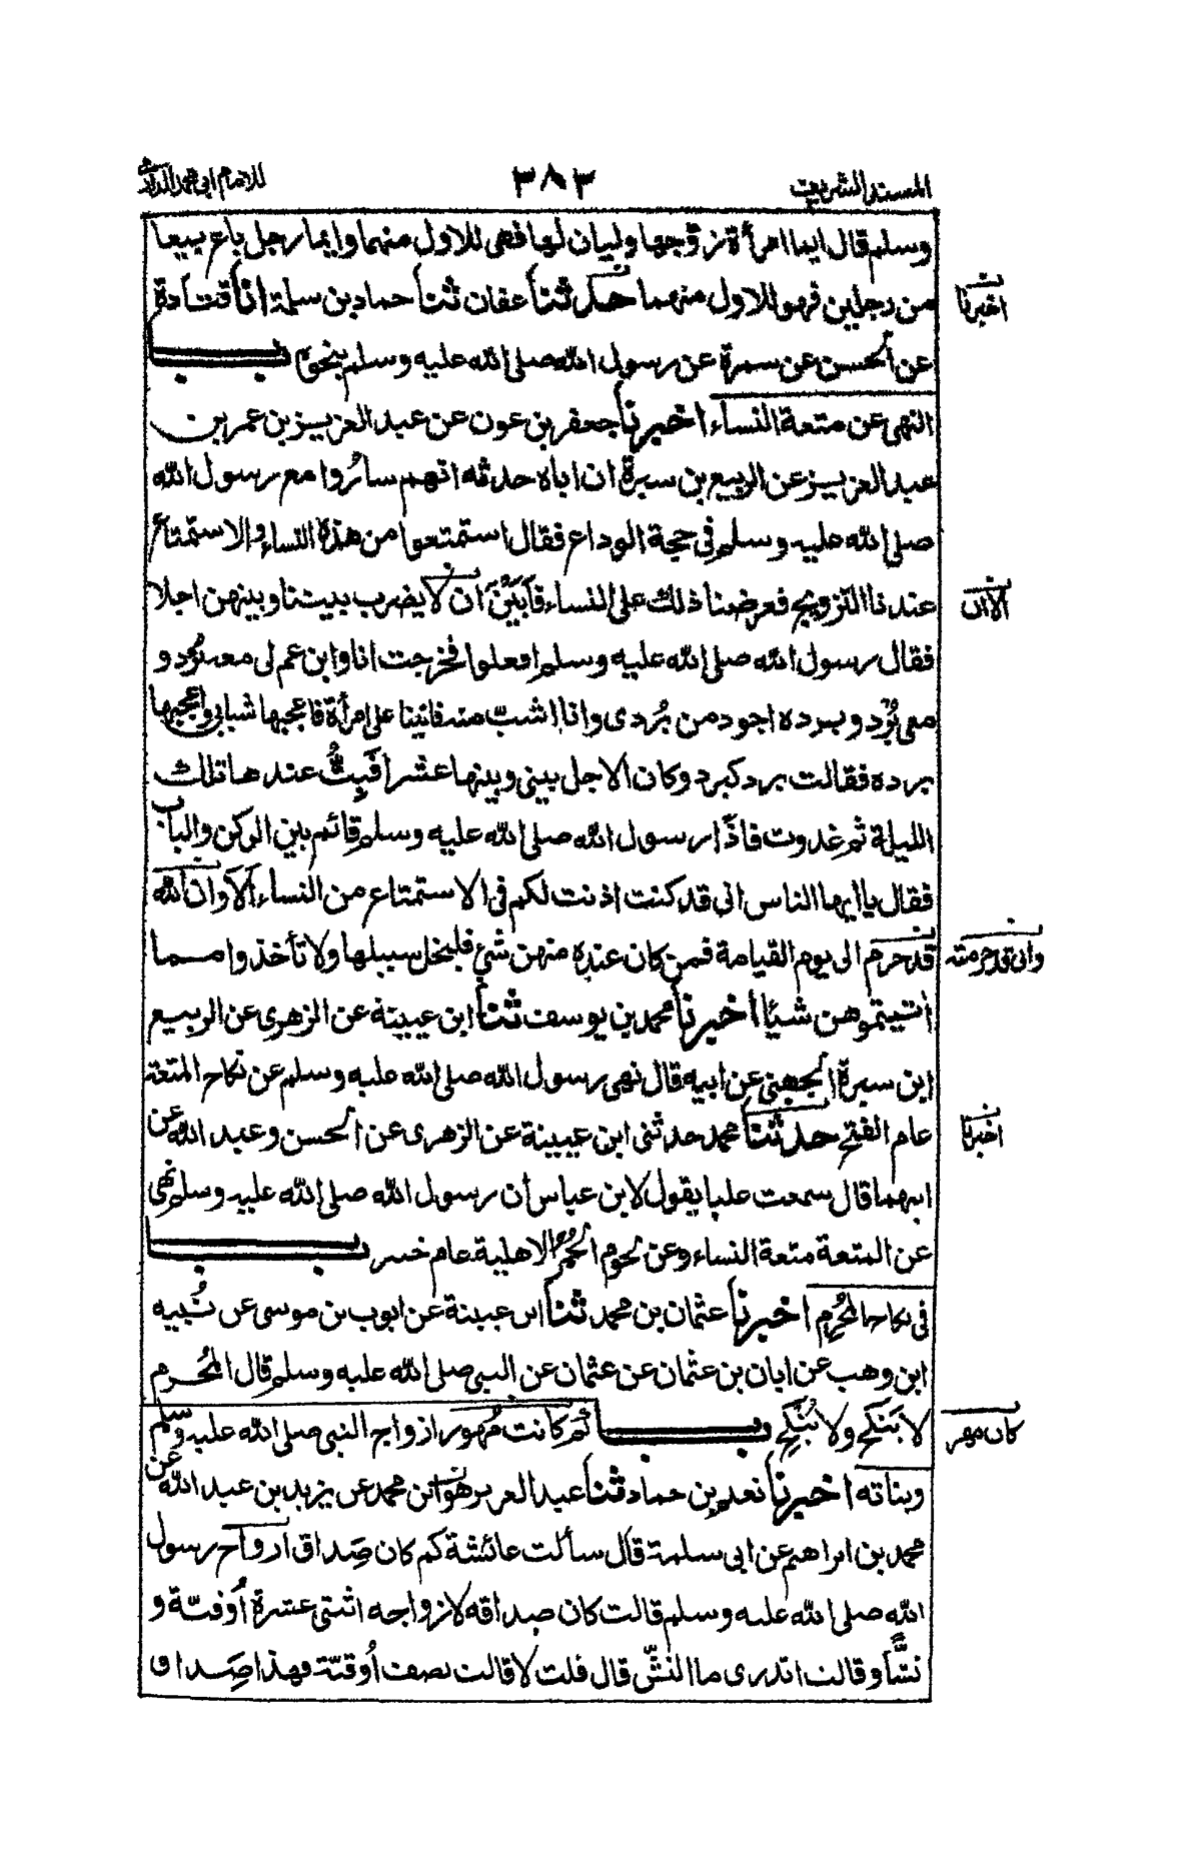 المسند الشريف ٣٨٣ للامام ابي محمد الدارمي
وسلم قال ايما امرأة زوجها وليان لها فهي للاول منهما وايما رجل باع بيعا
من رجلين فهو للاول منهما حدثنا عفان ثنا حماد بن سلمة انا قتادة
اخبرنا
عن الحسن عن سمرة عن رسول الله صلى الله عليه وسلم بنحوه باب
النهي عن متعة النساء اخبرنا جعفر بن عون عن عبد العزيز بن عمر بن
عبد العزيز عن الربيع بن سبرة ان اباه حدثه انهم ساروا مع رسول الله
صلى الله عليه وسلم في حجة الوداع فقال استمتعوا من هذه النساء والاستمتاع
عندنا التزويج فعرضنا ذلك على النساء فَأَبَيْنَ ان لا يضرب بيننا وبينهن اجلا
الا ان
فقال رسول الله صلى الله عليه وسلم افعلوا فخرجت انا وابن عم لي معه بُرد و
معي بُرْد وبرده اجود من بُردي وانا اشبّ منه فاتينا على امرأة فاعجبها شبابي واعجبها
برده فقالت برد كبرد وكان الاجل بيني وبينها عشرا فَبِتُّ عندها تلك
الليلة ثم غدوت فاذا رسول الله صلى الله عليه وسلم قائم بين الركن والباب
فقال يا ايها الناس اني قد كنت اذنت لكم في الاستمتاع من النساء ألا وان الله
قد حرم الى يوم القيامة فمن كان عنده منهن شيء فليخل سبيلها ولا تأخذوا مما
وانى قد حرمته
أتيتموهن شيئا أخبرنا محمد بن يوسف ثنا ابن عيينة عن الزهري عن الربيع
ابن سبرة الجهني عن ابيه قال نهى رسول الله صلى الله عليه وسلم عن نكاح المتعة
عام الفتح حدثنا محمد حدثني ابن عيينة عن الزهري عن الحسن وعبد الله عن
اخبرنا
ابيهما قال سمعت عليا يقول لابن عباس أن رسول الله صلى الله عليه وسلم نهى
عن المتعة متعة النساء وعن لحوم الحُمُر الاهلية عام خيبر باب
في نكاح المُحرِم اخبرنا عثمان بن محمد ثنا ابن عيينة عن ايوب بن موسى عن نُبيه
ابن وهب عن ابان بن عثمان عن عثمان عن النبي صلى الله عليه وسلم قال المُحرم
لا يَنكِح ولا يُنكِح باب كم كانت مُهور ازواج النبي صلى الله عليه وسلم
كان مهر
وبناته اخبرنا نعيم بن حماد ثنا عبد العزيز هو ابن محمد عن يزيد بن عبد الله عن
محمد بن ابراهيم عن ابي سلمة قال سألت عائشة كم كان صِداق ازواج رسول
الله صلى الله عليه وسلم قالت كان صداقه لازواجه اثنتي عشرة أُوقيّة و
نشًّا وقالت اتدري ما النشّ قال قلت لا قالت نصف أُوقيّة فهذا صِداق